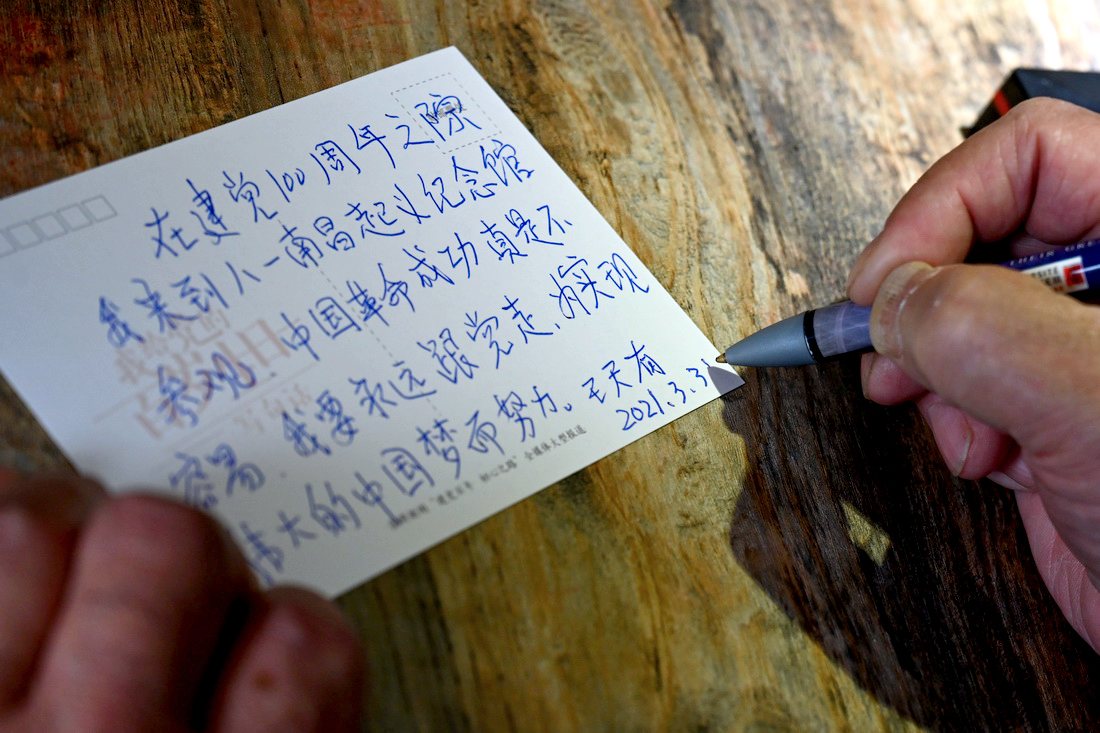 在建党100周年之际
我来到八一南昌起义纪念馆
参观.中国革命成功真是不
容易.我要永远跟党走、为实现
伟大的中国梦而努力。王天有
2021.3.31
全媒体大型报道